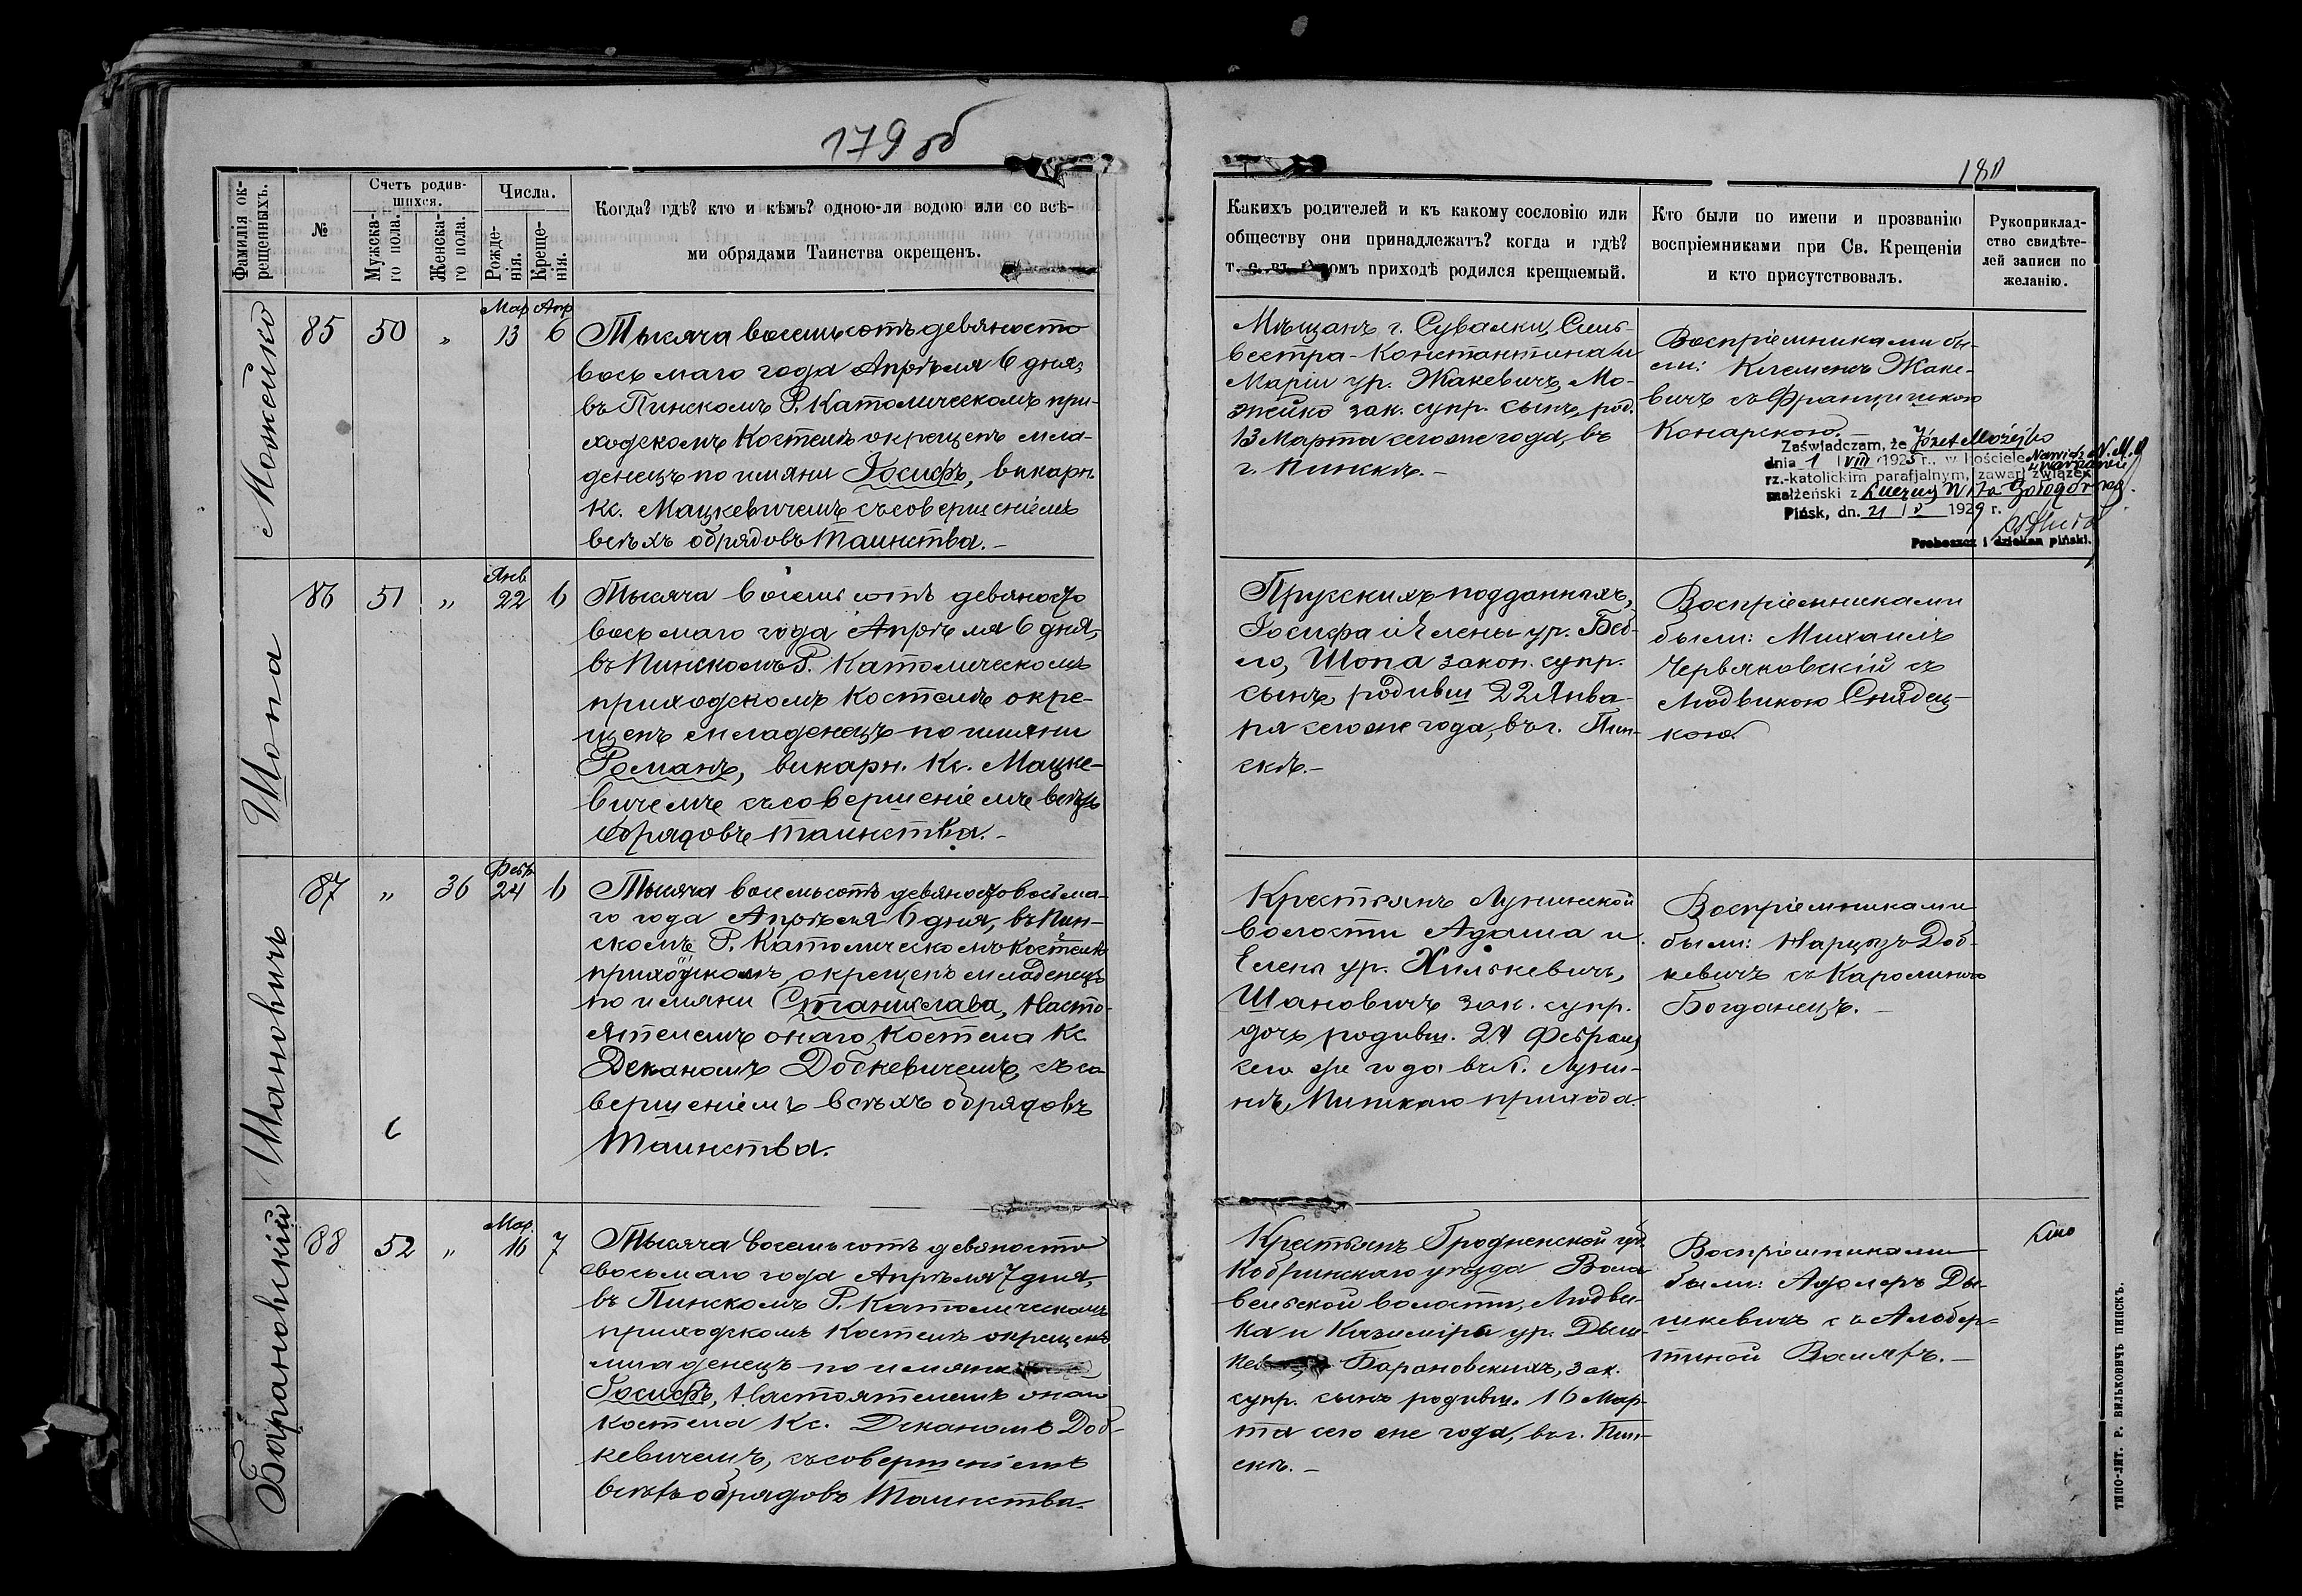 179 об
180
Фамилія ок-
рещенныхъ.
№
Счетъ родив-
шихся.
Мужска-
го пола.
Женска-
го пола.
Числа.
Рожде-
нія.
Креще-
нія.
Когда? гдѣ? кто и кѣмъ? одною-ли водою или со всѣ-
ми обрядами Таинства окрещенъ.
Какихъ родителей и къ какому сословію или
обществу они принадлежатъ? когда и гдѣ?
т. с. въ омъ приходѣ родился крещаемый.
Кто были по имени и прозванію
воспріемниками при Св. Крещеніи
и кто присутствовалъ.
Рукоприклад-
ство свидѣте-
лей записи по
желанію.
Можейко
85
50
„
Мар
13
Апр
6
Тысяча восемьсотъ девяносто
восьмаго года Апрѣля 6 дня,
въ Пинскомъ Р. Католическомъ при-
ходскомъ Костелѣ окрещенъ мла-
денецъ по имяни Іосифъ, викарн.
Кс. Мацкевичемъ съ совершеніемъ
всѣхъ обрядовъ Таинства.–
Мѣщанъ г. Сувалки, Силь-
вестра-Константина и
Маріи ур. Жакевичъ, Мо-
жейко зак. супр. сынъ, род.
13 Марта сего же года, въ
г. Пинскѣ.–
Воспріемниками бы-
ли: Клеменсъ Жаке-
вичъ съ Францишкою
Конарскою.–
Zaświadczam, że Józef Możejko
dnia 1 / VIII 1925 r., w kościele N. M. P.
rz.-katolickim parafjalnym, zawarł związek
małżeński z
Pińsk, dn. 21 / V 1929 r.
Proboszcz i dziekan piński.
Шопа
86
51
„
Янв
22
6
Тысяча восемьсотъ девяносто
восьмаго года Апрѣля 6 дня,
въ Пинскомъ Р. Католическомъ
приходскомъ Костелѣ окре-
щенъ младенецъ по имяни
Романъ, викарн. Кс. Мацке-
вичемъ съ совершеніемъ всѣхъ
обрядовъ таинства.–
Прусскихъ подданныхъ,
Іосифа и Елены ур. Беб-
ло, Шопа закон. супр.
сынъ, родивш 22 Янва-
ря сего же года, въ г. Пин-
скѣ.–
Воспріемниками
были: Михаилъ
Червяковскій съ
Людвикою Снядец-
кою.
Шановичъ
87
„
36
Февр
24
6
Тысяча восемьсотъ девяносто восьма-
го года Апрѣля 6 дня, въ Пин-
скомъ Р. Католическомъ Костелѣ
приходскомъ, окрещенъ младенецъ
по имяни Станислава, Насто-
ятелемъ онаго Костела Кс.
Деканомъ Добкевичемъ, съ со-
вершеніемъ всѣхъ обрядовъ
Таинства.
Крестьянъ Лунинской
волости Адама и
Елены ур. Хилькевичъ,
Шановичъ зак. супр.
дочь родивш. 24 Февраля
сего же года въ Луни-
нѣ, Пинскаго прихода.
Воспріемниками
были: Нарцызъ Доб-
кевичъ съ Каролиною
Богданецъ.–
Барановскій
88
52
„
Мар.
16
7
Тысяча восемьсотъ девяносто
восьмаго года Апрѣля 7 дня,
въ Пинскомъ Р. Католическомъ
приходскомъ Костелѣ окрещенъ
младенецъ по имяни
Іосифъ, Настоятелемъ онаго
Костела Кс. Деканомъ Доб-
кевичемъ, съ совершеніемъ
всѣхъ обрядовъ Таинства.
Крестьянъ Гродненской губ.
Кобринскаго уѣзда
волости, Людви-
ка и Казиміры ур.
Барановскихъ, зак.
супр. сынъ родивш. 16 Мар-
та сего же года, въ г. Пин-
скѣ.–
Воспріемниками
были: Адольфъ Ды-
шкевичъ съ Альбер-
тиной
ТИПО-ЛИТ. Р. ВИЛЬКОВИЧЪ ПИНСКЪ.